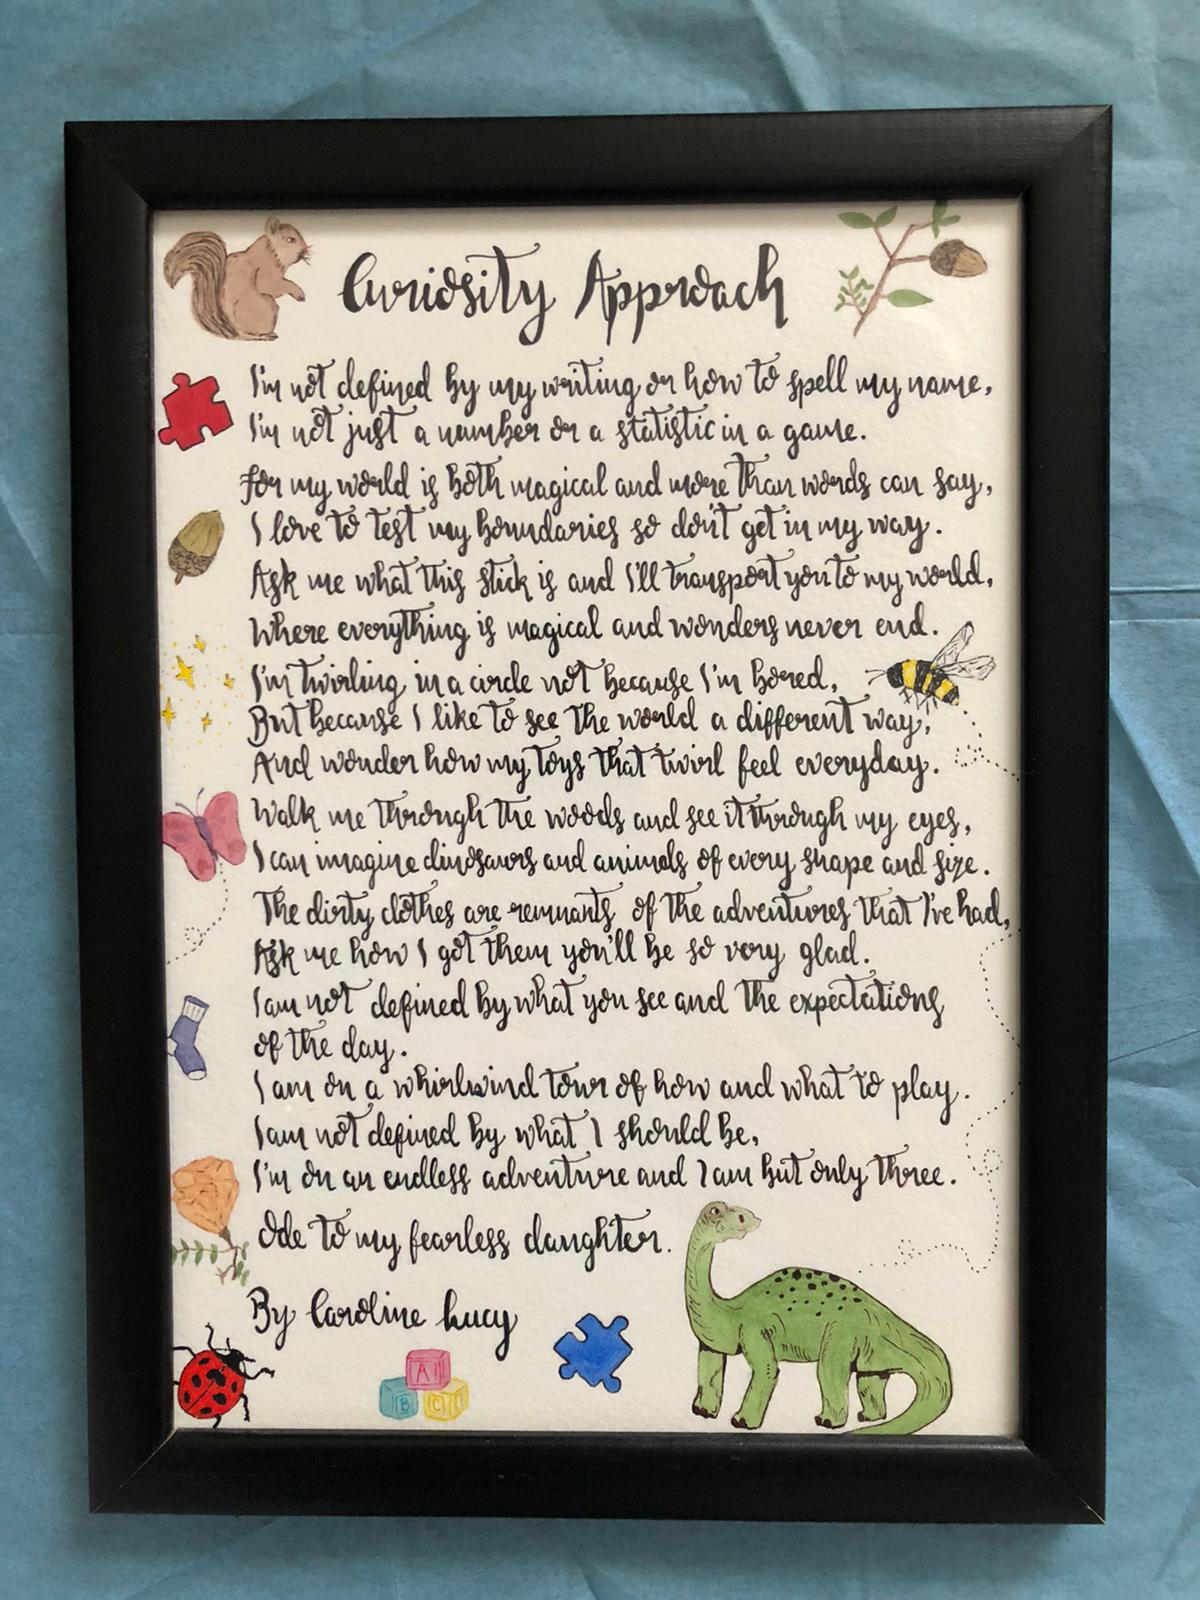 Curiosity Approach
I'm not defined by my writing or how to spell my name,
I'm not just a number or a statistic in a game.
For my world is both magical and more than words can say,
I love to test my boundaries so don't get in my way.
Ask me what this stick is and I'll transport you to my world,
Where everything is magical and wonders never end.
I'm twirling in a circle not because I'm bored,
But because I like to see the world a different way,
And wonder how my toys that twirl feel everyday.
Walk me through the woods and see it through my eyes,
I can imagine dinosaurs and animals of every shape and size.
The dirty clothes are remnants of the adventures that I've had,
Ask me how I got them you'll be so very glad.
I am not defined by what you see and the expectations
of the day.
I am on a whirlwind tour of how and what to play.
I am not defined by what I should be,
I'm on an endless adventure and I am but only three.
Ode to my fearless daughter.
By Caroline Lucy
A
B C